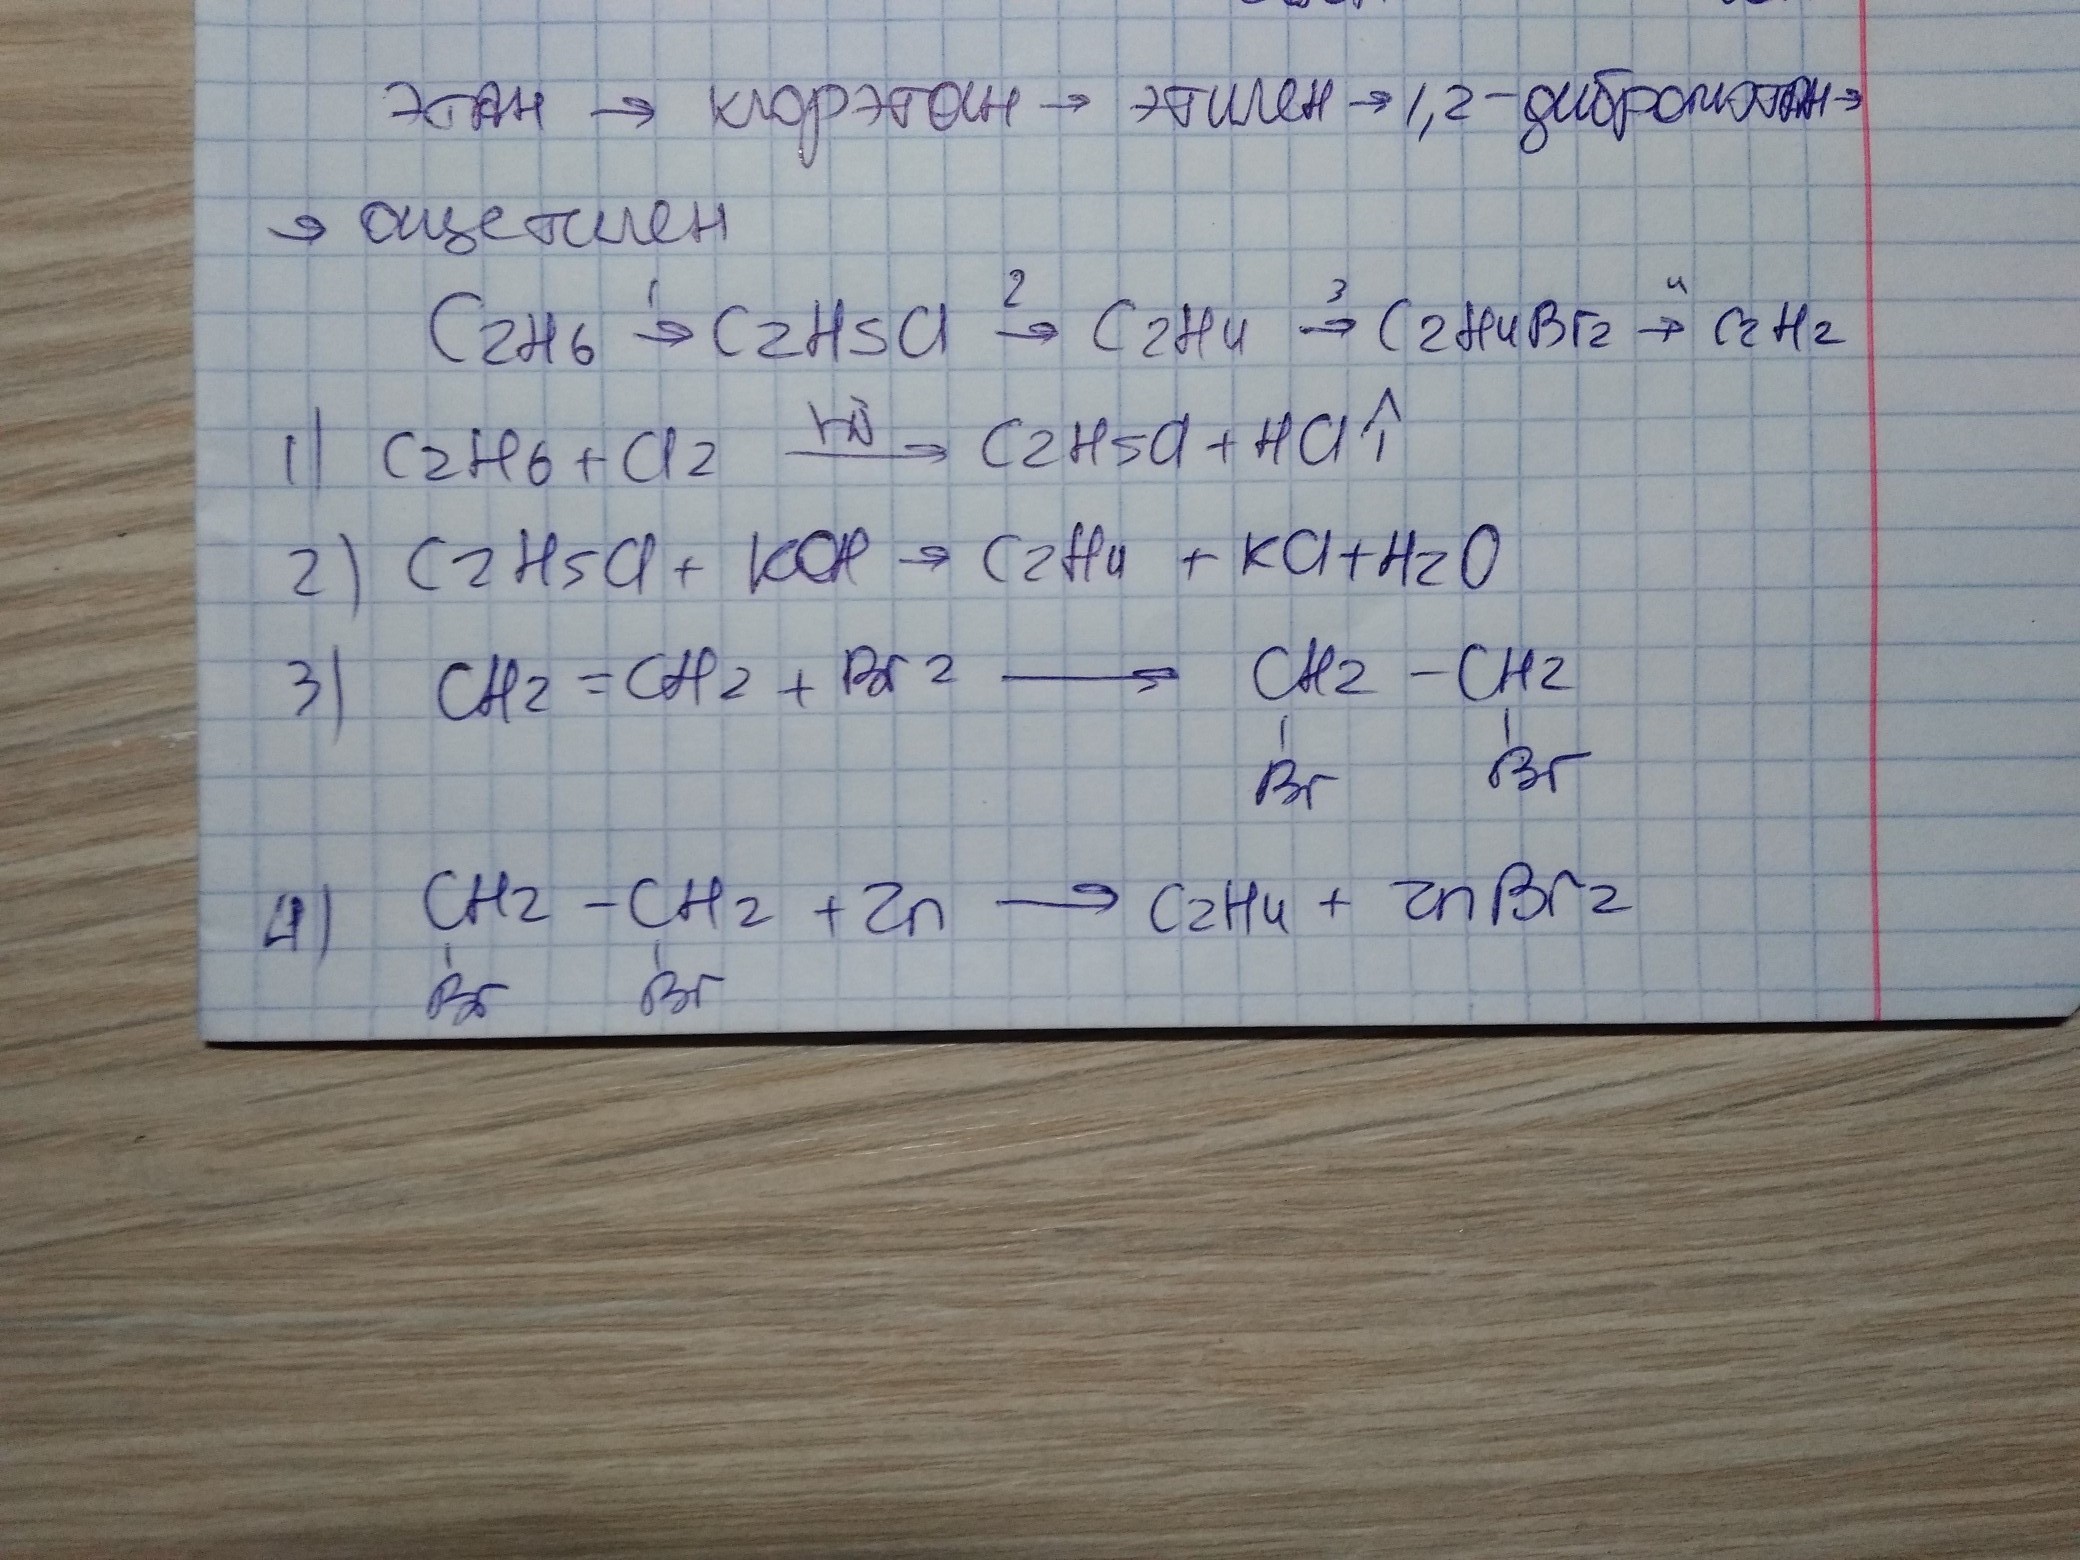 этан → хлорэтан → этилен → 1,2-дибромэтан →
→ ацетилен
C2H6 →1 C2H5Cl →2 C2H4 →3 C2H4Br2 →4 C2H2
1) C2H6 + Cl2 →hν C2H5Cl + HCl↑
2) C2H5Cl + KOH → C2H4 + KCl + H2O
3) CH2 = CH2 + Br2 → CH2 - CH2
Br Br
4) CH2 - CH2 + Zn → C2H4 + ZnBr2
Br Br